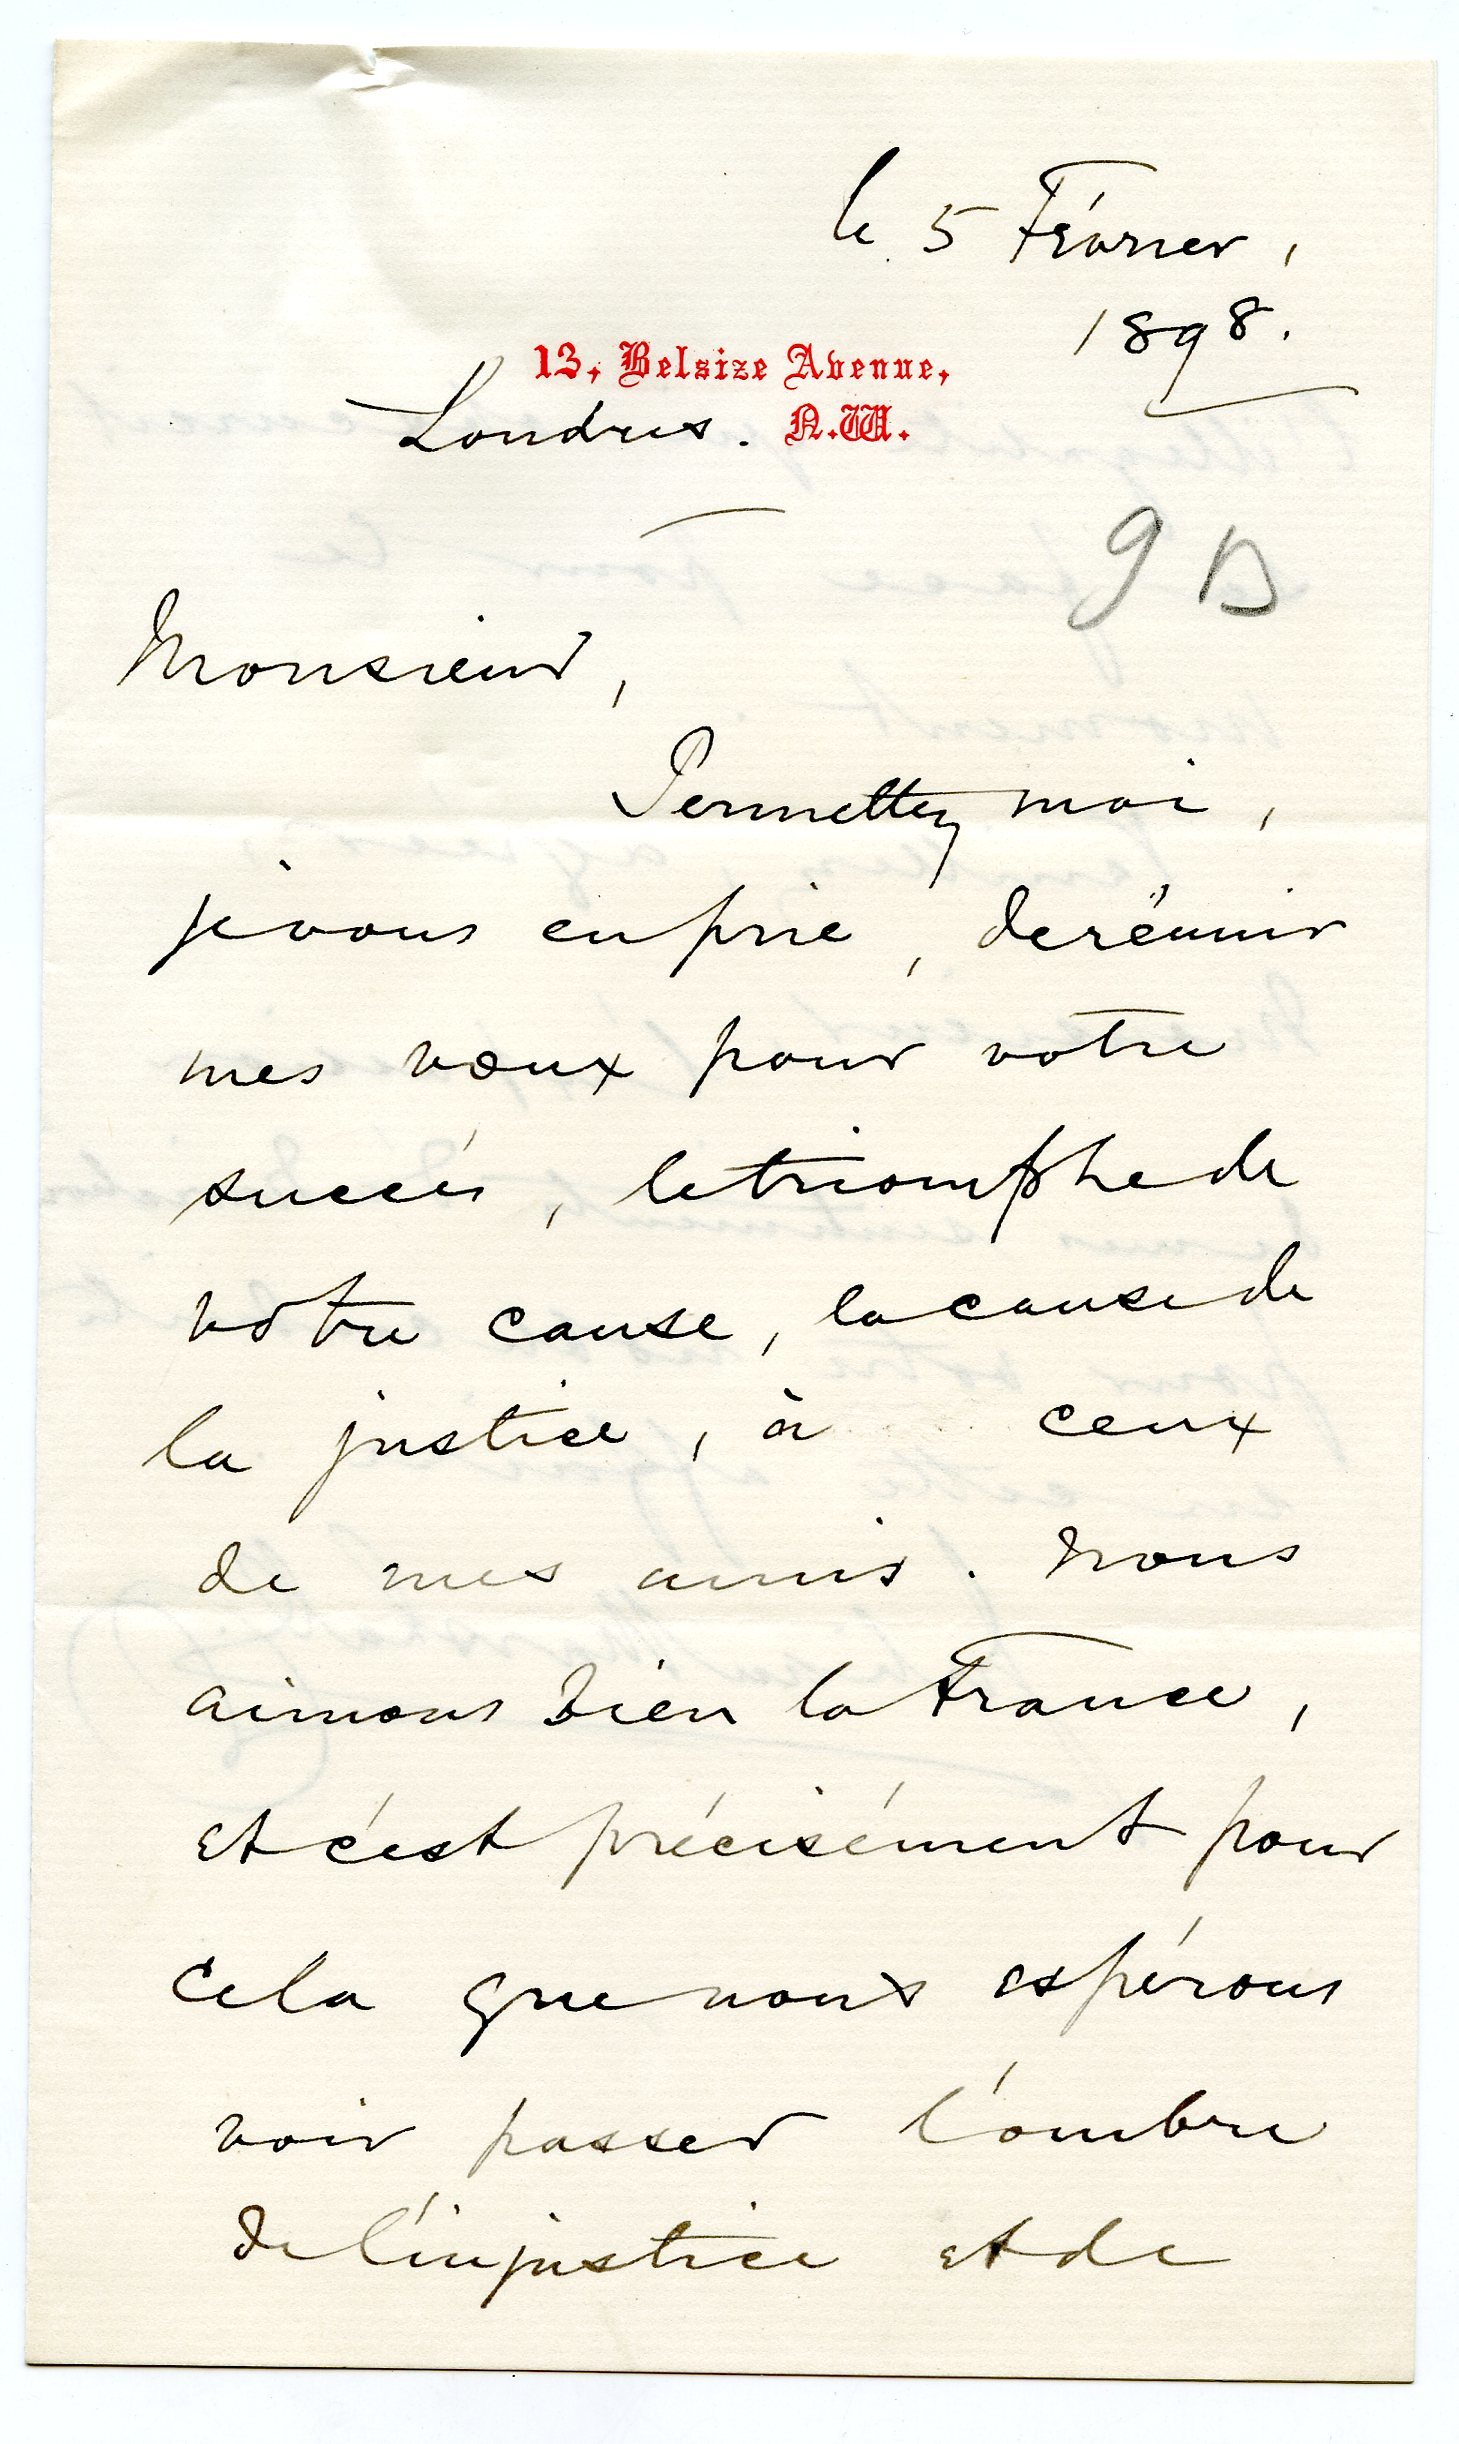 le 5 Février,
1898.
13, Belsize Avenue,
Londres. N.W.
9 D
Monsieur,
Permettez moi,
je vous en prie, de réunir
mes vœux pour votre
succès, le triomphe de
vôtre cause, la cause de
la justice, à ceux
de mes amis. Nous
aimons bien la France,
et c'est précisément pour
cela que nous espérons
voir passer l'ombre
de l'injustice et de